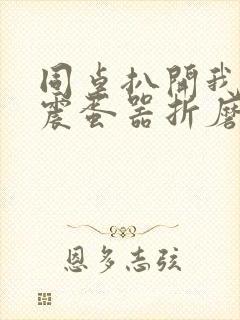 同桌扒開我
震蛋器折磨
恩多志弦